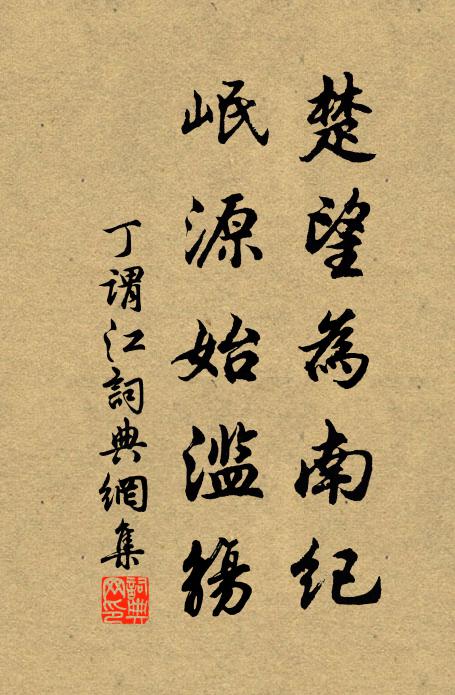 楚望為南紀
岷源始濫觴
丁謂江詞典網集
詞典网印